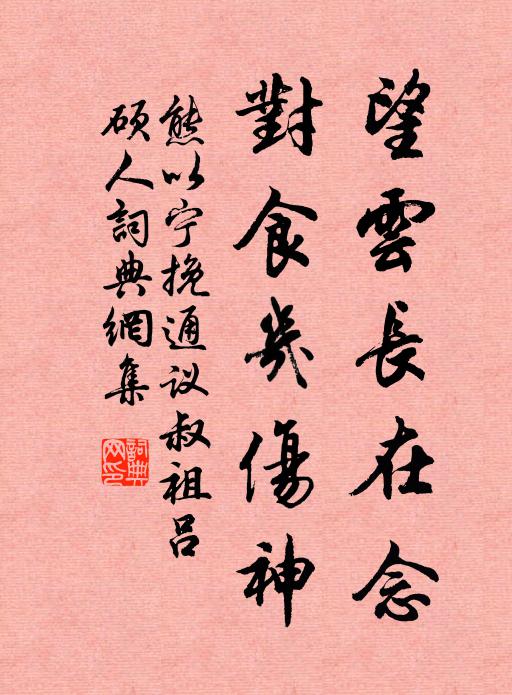 望雲長在念
對食幾傷神
熊以宁挽通议叔祖吕
硕人詞典網集
詞典网印